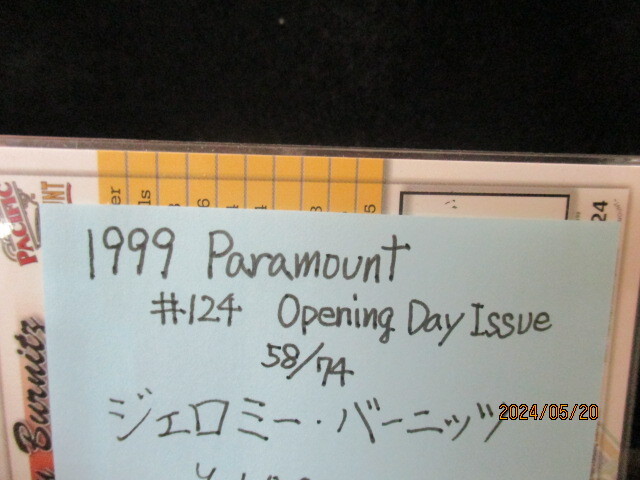 PACIFIC
24
1999 Paramount
#124 Opening Day Issue
58/74
ジェロミー・バーニッツ
Burnitz
2024/05/20